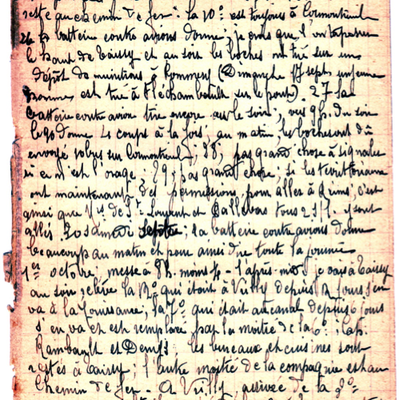 reste que chemin de fer; la 10e est toujours à Cormontreuil
26 la batterie contre avions donne; je crois que l'on
le haut de Taissy et au soir les boches ont tiré sur un
dépôt de munitions à Rommigny (Dimanche 17 sept un jeune
homme est tué à l'Echambault sur le pont). 27 la
batterie contre avion tire encore sur le soir; vers 9h. du soir
le 90 donne 4 coups à la fois; au matin les boches ont dû
envoyé obus sur Cormontreuil; 28, pas grand chose à signaler
si ce n'est l'orage; 29; pas grand chose; si les territoriaux
ont maintenant des permissions pour aller à Reims; c'est
ainsi que Mrs de St Laurent et Caillebar tous 2 y sont
allés. 30 samedi septbre; la batterie contre avions donne
beaucoup au matin et pour ainsi dire toute la journée
1er octobre, messe à 8h. moins 1/4 - l'après midi je vais à Taissy
au soir relève la 12e qui était à Villy depuis 12 jours s'en
va à la Jouissance; la 7e qui était au canal depuis jours
s'en va et est remplacé par la moitié de la 6e: Cap.
Rambault et Denis; les bureaux et cuisines sont
restés à Taissy; l'autre moitié de la compagnie est au
Chemin de fer - A Villy, arrivée de la 9e